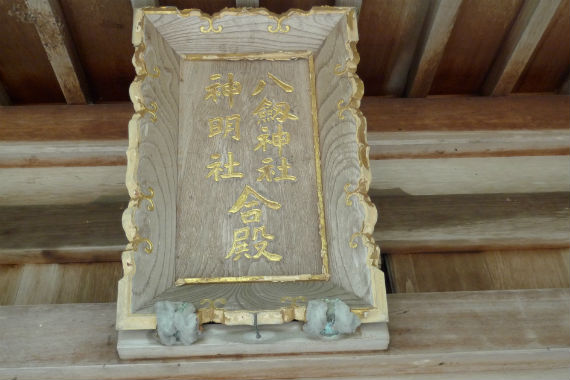 八劔神社
神明社
合殿